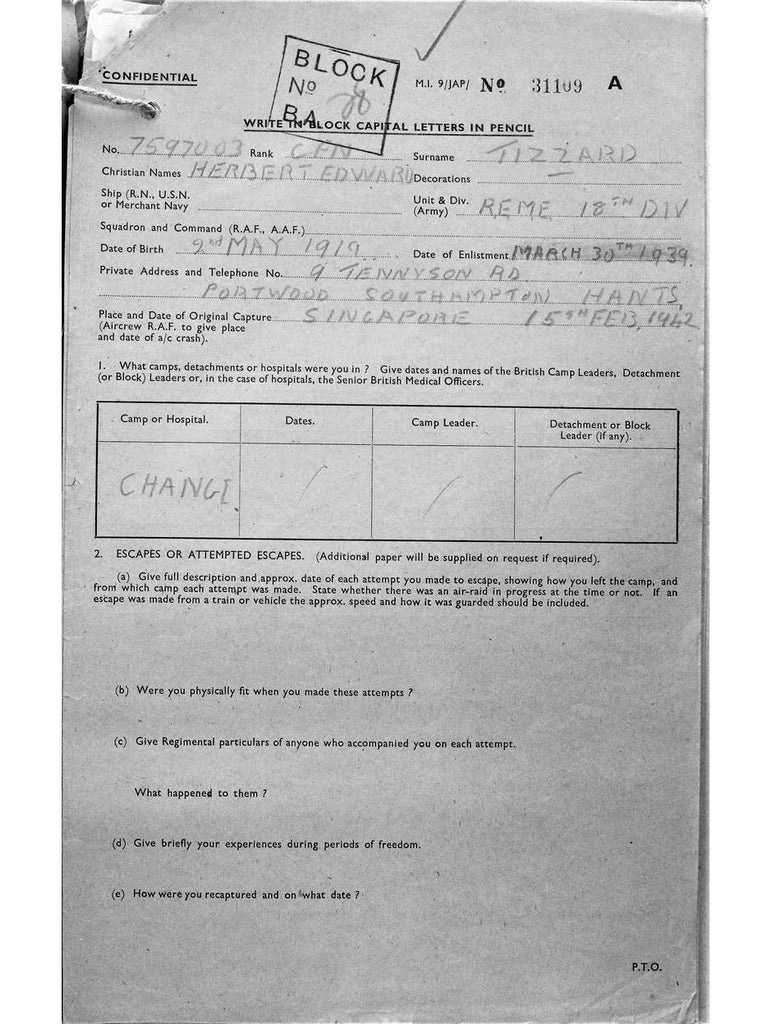 CONFIDENTIAL
BLOCK
No
B.A.
M.I. 9/JAP/ No 31109 A
WRITE IN BLOCK CAPITAL LETTERS IN PENCIL
No. 7597003 Rank CFN Surname TIZZARD
Christian Names HERBERT EDWARD Decorations —
Ship (R.N., U.S.N. or Merchant Navy
Unit & Div. (Army) R.E.M.E. 18TH DIV
Squadron and Command (R.A.F., A.A.F.)
Date of Birth 2nd MAY 1919 Date of Enlistment MARCH 30TH 1939.
Private Address and Telephone No. 9 TENNYSON RD
PORTWOOD SOUTHAMPTON HANTS,
Place and Date of Original Capture SINGAPORE 15TH FEB, 1942
(Aircrew R.A.F. to give place
and date of a/c crash).
1. What camps, detachments or hospitals were you in ? Give dates and names of the British Camp Leaders, Detachment
(or Block) Leaders or, in the case of hospitals, the Senior British Medical Officers.
Camp or Hospital. Dates. Camp Leader. Detachment or Block
Leader (if any).
CHANGI / / /
2. ESCAPES OR ATTEMPTED ESCAPES. (Additional paper will be supplied on request if required).
(a) Give full description and approx. date of each attempt you made to escape, showing how you left the camp, and
from which camp each attempt was made. State whether there was an air-raid in progress at the time or not. If an
escape was made from a train or vehicle the approx. speed and how it was guarded should be included.
(b) Were you physically fit when you made these attempts ?
(c) Give Regimental particulars of anyone who accompanied you on each attempt.
What happened to them ?
(d) Give briefly your experiences during periods of freedom.
(e) How were you recaptured and on what date ?
P.T.O.